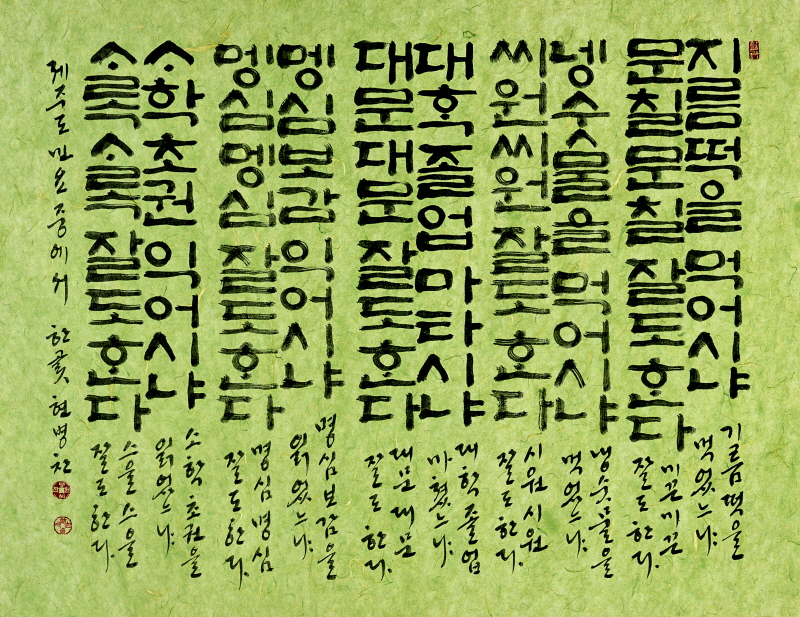 지름떡을 먹어시냐
문칠문칠 잘도 ᄒᆞᆫ다
넹수물을 먹어시냐
씨원씨원 잘도 ᄒᆞᆫ다
대ᄒᆞᆨ 즐업 마타시냐
대문대문 잘도 ᄒᆞᆫ다
멩심보감 익어시냐
멩심멩심 잘도 ᄒᆞᆫ다
소학 초권 익어시냐
소록소록 잘도 ᄒᆞᆫ다
기름떡을
먹었느냐
미끈미끈
잘도 한다.
냉숫물을
먹었느냐
시원시원
잘도 한다.
대학 졸업
마쳤느냐
대문대문
잘도 한다.
명심보감을
읽었느냐
명심명심
잘도 한다.
소학 초권을
읽었느냐
스을스을
잘도 한다.
제주도 민요 중에서 한곬 현병찬